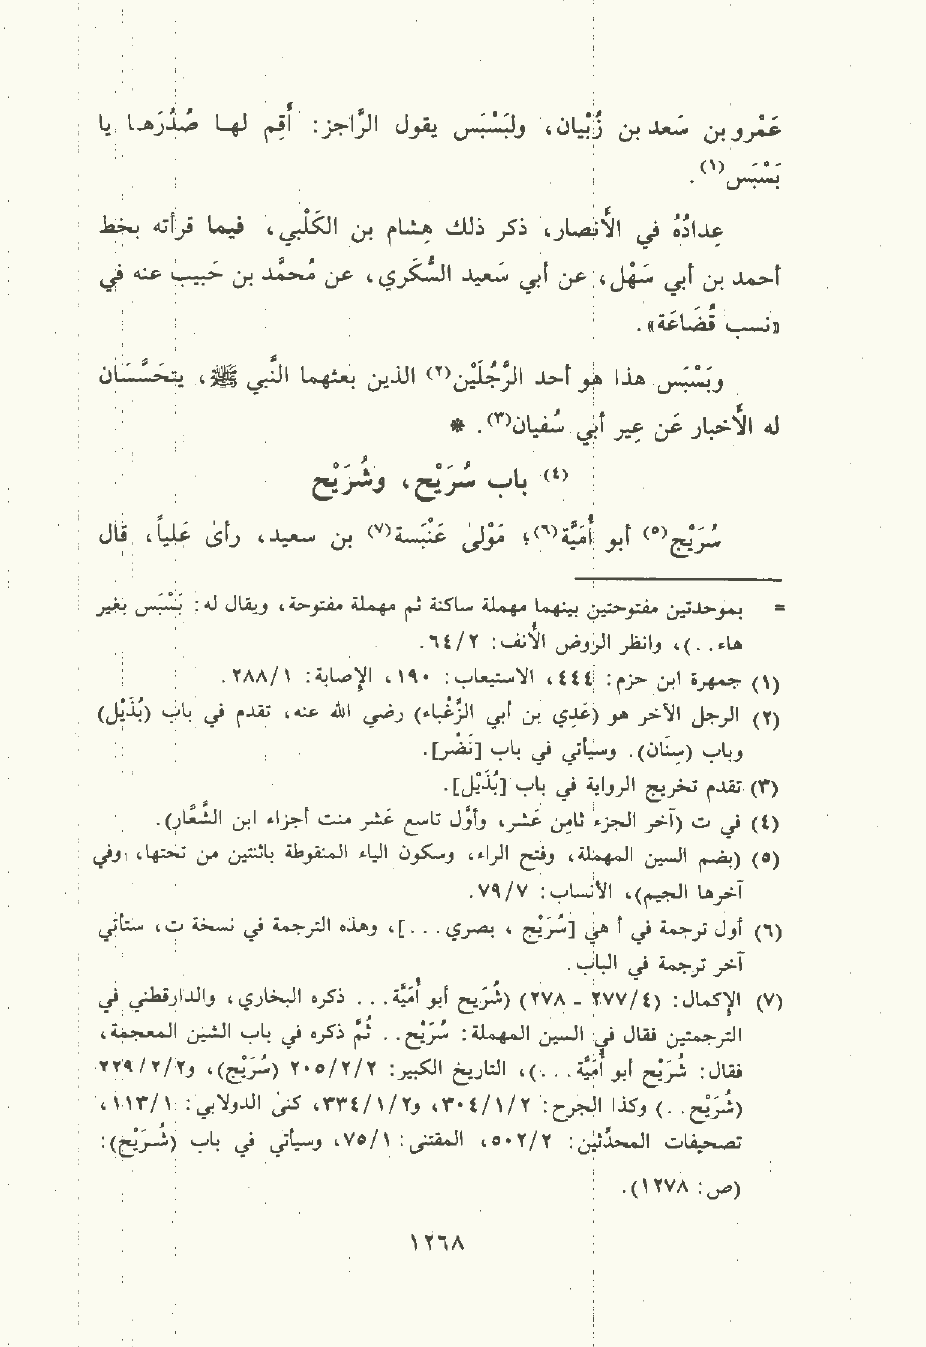 عَمْرو بن سَعد بن زُبْيان، ولبَسْبَس يقول الرَّاجز: أَقِم لهـا صُدُرَهـا يا
بَسْبَس(١).
عِدادُهُ في الأَنصار، ذكر ذلك هِشام بن الكَلْبي، فيما قرأته بخط
أحمد بن أبي سَهْل، عن أبي سَعيد السُّكَري، عن مُحمَّد بن حَبيب عنه في
«نسب قُضَاعَة».
وبَسْبَس هذا هو أحد الرَّجُلَيْن(٢) الذين بعثهما النَّبي ﷺ، يتحَسَّسَان
له الأَخبار عَن عِير أبي سُفيان(٣). *
(٤) باب سُرَيْح، وشُرَيْح
سُرَيْج(٥) أبو أُمَيَّة(٦)؛ مَوْلىٰ عَنْبَسة(٧) بن سعيد، رأىٰ عَلياً، قال
= بموحدتين مفتوحتين بينهما مهملة ساكنة ثم مهملة مفتوحة، ويقال له: بَسْبَس بغير
هاء..)، وانظر الروض الأنف: ٦٤/٢.
(١) جمهرة ابن حزم: ٤٤٤، الاستيعاب: ١٩٠، الإصابة: ٢٨٨/١.
(٢) الرجل الآخر هو (عَدِي بن أبي الزَّغْباء) رضي الله عنه، تقدم في باب (بُذَيْل)
وباب (سِنَان). وسيأتي في باب [نَضْر].
(٣) تقدم تخريج الرواية في باب [بُذَيْل].
(٤) في ت (آخر الجزء ثامِن عَشر، وأوَّل تاسع عَشر منت أجزاء ابن الشَّعَّار).
(٥) (بضم السين المهملة، وفتح الراء، وسكون الياء المنقوطة باثنتين من تحتها، وفي
آخرها الجيم)، الأنساب: ٧٩/٧.
(٦) أول ترجمة في أ هي [سُرَيْج ، بصري...]، وهذه الترجمة في نسخة ت، ستأتي
آخر ترجمة في الباب.
(٧) الإكمال: (٢٧٧/٤ - ٢٧٨) (شُرَيح أبو أُمَيَّة... ذكره البخاري، والدارقطني في
الترجمتين فقال في السين المهملة: سُرَيْح.. ثُمَّ ذكره في باب الشين المعجمة،
فقال: شُرَيْح أبو أُمَيَّة...)، التاريخ الكبير: ٢٠٥/٢/٢ (سُرَيْج)، و٢٢٩/٢/٢
(شُرَيْح..) وكذا الجرح: ٣٠٤/١/٢، و٣٣٤/١/٢، كنىٰ الدولابي: ١١٣/١،
تصحيفات المحدِّثين: ٥٠٢/٢، المقتنى: ٧٥/١، وسيأتي في باب (شُرَيْح):
(ص: ١٢٧٨).
١٢٦٨